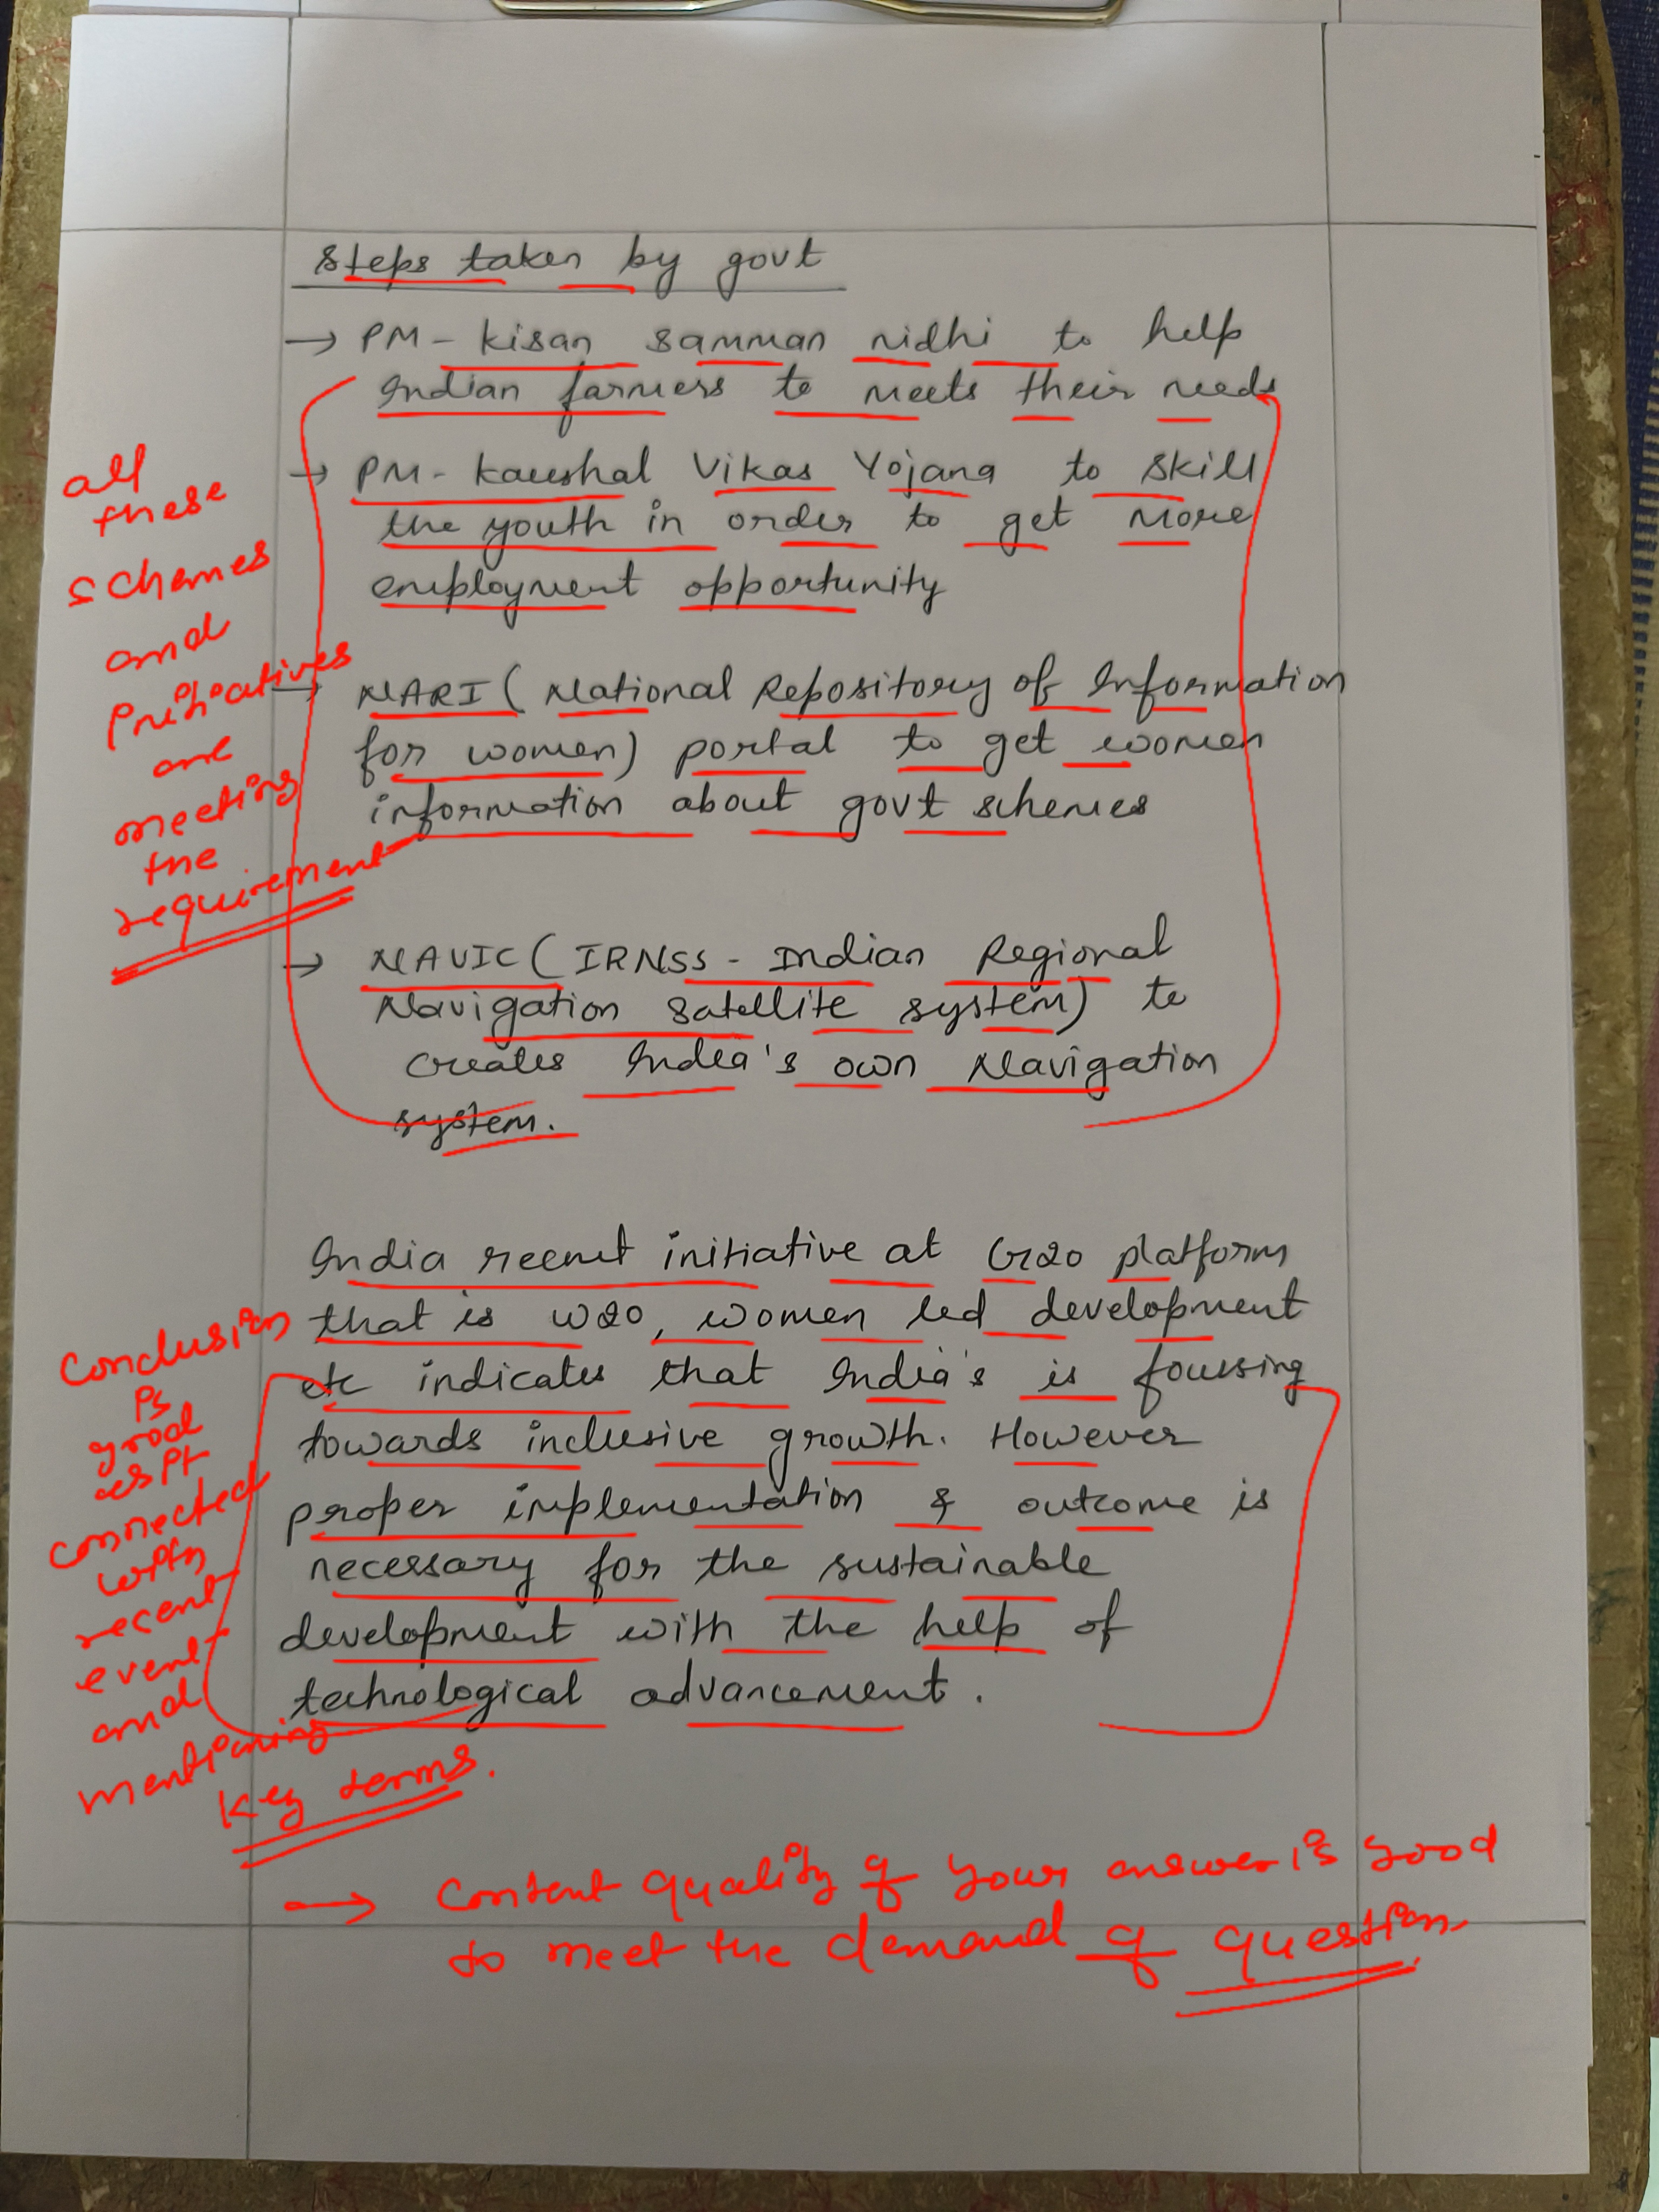 Steps taken by govt
→ PM - kisan samman nidhi to help
Indian farmers to meets their needs
→ PM - kaushal Vikas Yojana to skill
the youth in order to get more
employment opportunity
→ NARI ( National Repository of Information
for women) portal to get women
information about govt schemes
→ NAVIC ( IRNSS - Indian Regional
Navigation satellite system) to
creates India's own Navigation
system.
all
these
schemes
and
initiatives
are
meeting
the
requirement
India recent initiative at G20 platform
that is W20, women led development
etc indicates that India's is focussing
towards inclusive growth. However
proper implementation & outcome is
necessary for the sustainable
development with the help of
technological advancement.
Conclusion
is
good
as it
connected
with
recent
event
and
mentioning
key terms.
→ Content quality of your answer is good
to meet the demand of question.